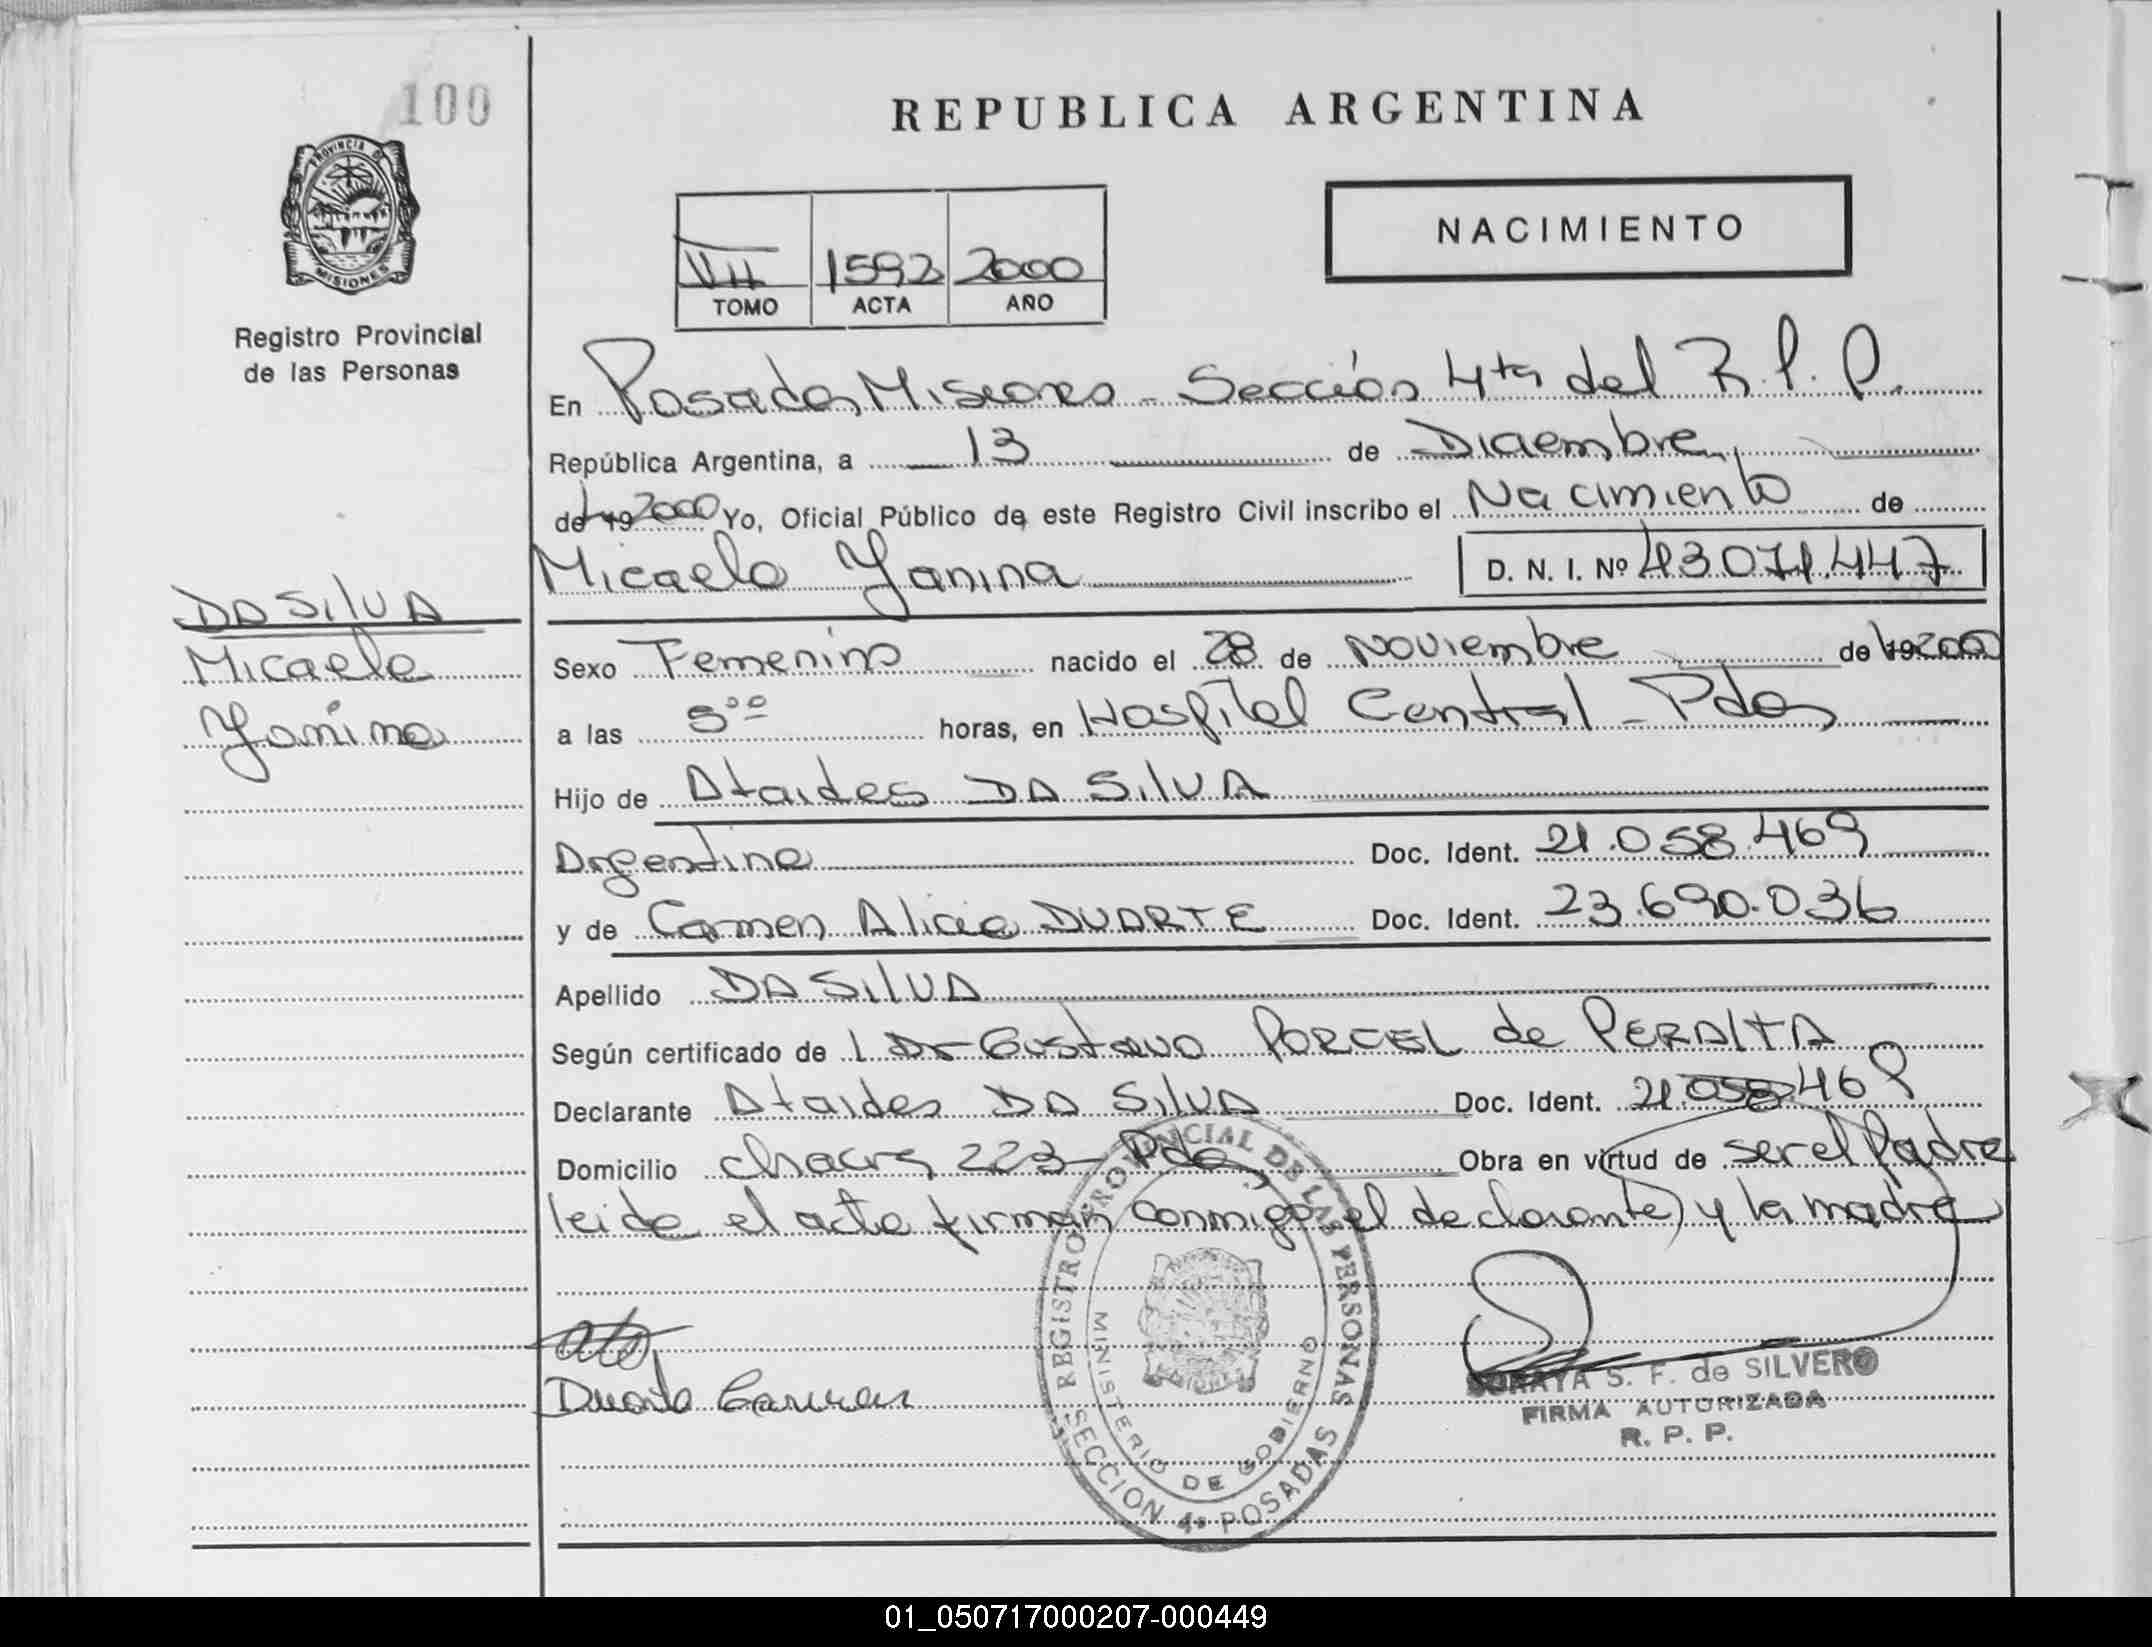 100
PROVINCIA DE
MISIONES
Registro Provincial
de las Personas
DA SILVA
Micaela
Yanina
REPUBLICA ARGENTINA
VII 1592 2000
TOMO ACTA AÑO
NACIMIENTO
En Posadas Misiones - Sección 4ta del R.P.P.
República Argentina, a 13 de Diciembre
de 19 2000 Yo, Oficial Público de este Registro Civil inscribo el Nacimiento de
Micaela Yanina D. N. I. Nº 43.071.447
Sexo Femenino nacido el 28 de Noviembre de 19 2000
a las 5⁰⁰ horas, en Hospital Central - Pdas
Hijo de Ataides DA SILVA
Argentina Doc. Ident. 21.058.469
y de Carmen Alicia DUARTE Doc. Ident. 23.690.036
Apellido DA SILVA
Según certificado de Dr Gustavo PORCEL de PERALTA
Declarante Ataides DA SILVA Doc. Ident. 21.058.469
Domicilio chacra 223 - Pdas Obra en virtud de ser el Padre
leida el acta firman conmigo el declarante y la madre
Duarte Carmen
REGISTRO PROVINCIAL DE LAS PERSONAS
MINISTERIO DE GOBIERNO
SECCION 4ª POSADAS
SORAYA S. F. de SILVERO
FIRMA AUTORIZADA
R. P. P.
01_050717000207-000449